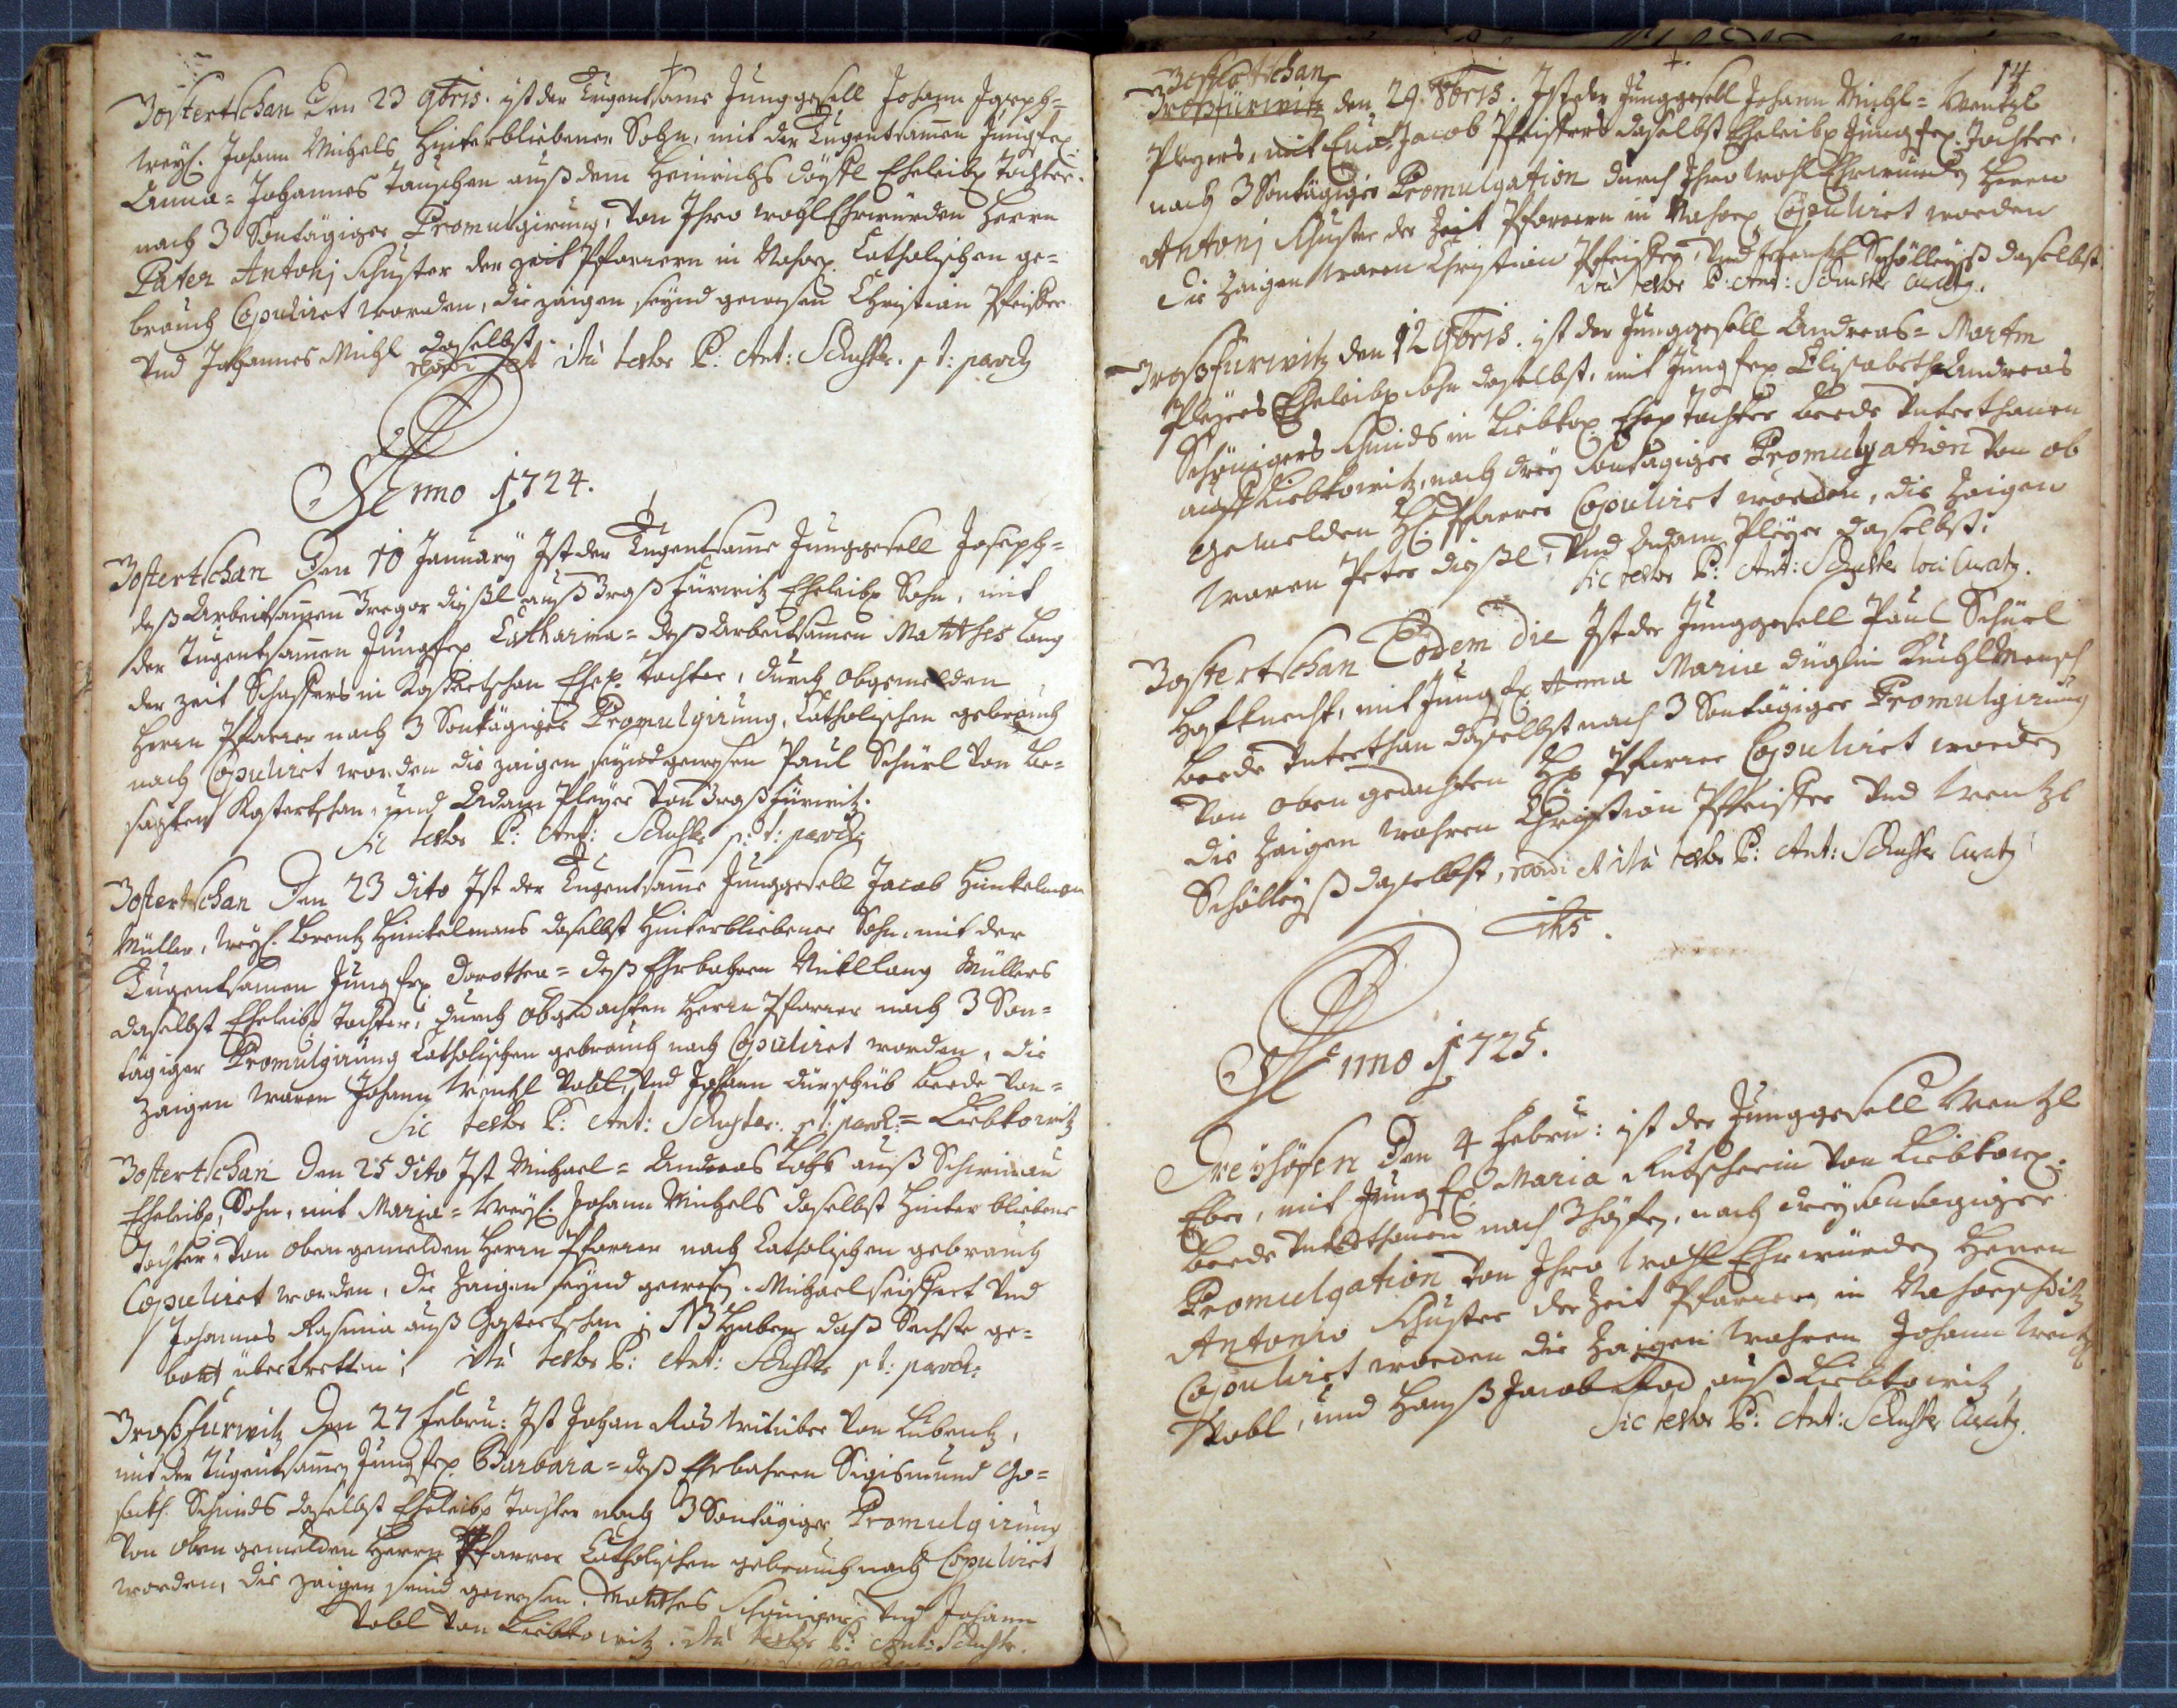 Gostertschan Den 23 9bris. ist der Tugentsame Junggesell Johann Joseph=
weyl. Johann Michels Hinterbliebener Sohn, mit der Tugentsamen Jungfer
Anna= Johannes Tauschen auß dem Heinrichs Eheleibl. Tochter.
nach 3 Sontägiger Promulgirung, von Ihro wohl Ehrwürden Herrn
Pater Antonj Schuster der zeit Pfarrern in Catholischen ge=
brauch Copuliret worden, die zeigen seynd gewesen Christian Pfeiffer
Vnd Johannes Michl daselbst.
ita testor P: Ant: Schuster. p t: paroch
Anno 1724.
Gostertschan Den 10 January Ist der Tugentsame Junggesell Joseph=
deß Arbeitsamen Gregor auß Groß Furwitz Eheleibl. Sohn, mit
der Tugentsamen Jungfer Catharina= deß Arbeitsamen Matthes Lang
der zeit Schaffers in Kostertschan Ehel. Tochter, durch obgemelden
Herrn Pfarrer nach 3 Sontägiger Promulgirung, Catholischen gebrauch
nach Copuliret worden die zeigen seynd gewesen Paul Schürl von be=
sagten Kostertschan, und Adam Pleyer von Groß Furwitz.
Sic testor P: Ant: Schuster p: t: paroch
Gostertschan Den 23 dito Ist der Tugentsame Junggesell Jacob Hinkelman
Müller, weyl. Lorentz Hinkelmans daselbst Hinterbliebener Sohn, mit der
Tugentsamen Jungfer Dorothea= deß Ehrbahren Nikl Lang Müllers
daselbst Eheleibl. Tochter, durch obgedachten Herrn Pfarrer nach 3 Son=
tägiger Promulgirung Catholischen gebrauch nach Copuliret worden, die
zeigen waren Johann Wentzl Vobl, Vnd Johann beede von=
Sic testor P: Ant: Schuster. p t: paroch:= Liebkowitz
Gostertschan Den 25 dito Ist Michael= Andreas auß
Eheleibl. Sohn, mit Maria= weyl. Johann Michels daselbst Hinterbliebene
Tochter, von oben gemelden Herrn Pfarrer nach Catholischen gebrauch
Copuliret worden, die zeigen seynd gewesen. Michael Vnd
Johannes auß Gostertschan; NB Haben daß Sechste ge=
bott übertretten; ita testor P: Ant: Schuster p t: paroch:
Großfurwitz Den 27 Febru: Ist Johan von Lubentz,
mit der Tugentsamen Jungfer Barbara= deß Ehrbahren Sigismund Go=
Schmids daselbst Eheleibl. Tochter nach 3 Sontägiger Promulgirung
von oben gemelden Herrn Pfarrer Catholischen gebrauch nach Copuliret
worden, die zeigen seind gewesen. Matthes Schöniger, Vnd Johann
Vobl von Liebkowitz. ita testor P: Ant: Schuster.
14
Gostertschan
Großfürwitz den 29. 8bris. Ist der Junggesell Johann Michl= Wentzl
Pleyers, mit Eua= Jacob Pfeiffers daselbst Eheleibl. Jungfer Tochter,
nach 3 Sontägiger Promulgation durch Ihro wohl Ehrwürden Herrn
Antonj Schuster der Zeit Pfarrern in Copuliret worden
die Zeigen waren Christian Pfeiffer, Vnd Wentzl Schölleyß daselbst.
ita testor P: Ant: Schuster Curatq.
Großfurwitz den 12 9bris. ist der Junggesell Andreas= Martin
Pleyers Eheleibl. sohn daselbst, mit Jungfer Elisabeth Andreas
Schönigers Schmids in Liebkow. Ehel. Tochter beede Vnterthanen
auff Liebkowitz, nach drey Sontägiger Promulgation von ob
gemelden H. Pfarrer Copuliret worden, die Zeigen
waren Peter, Vnd Adam Pleyer daselbst.
Sic testor P: Ant: Schuster loci Curatq.
Gostertschan Eodem Die Ist der Junggesell Paul Schürl
Hoffknecht, mit Jungfer Anna Maria KuchlMensch
beede Vnterthan daselbst nach 3 Sontägiger Promulgirung
von oben gedachten H. Pfarrer Copuliret worden
die Zeigen wahren Christian Pfeiffer Vnd Wentzl
Schölleyß daselbst, ita testor P: Ant: Schuster Curatq
Anno 1725.
Dreyhöfen Den 4 Febru: ist der Junggesell Wentzl
Eber, mit Jungfer Maria Kutscherin von Liebkow.
beede Vnterthanen nach 3höfen, nach dreysontagiger
Promulgation von Ihro Wohl Ehrwürden Herrn
Antonio Schuster der Zeit Pfarrern in
Copuliret worden die Zeigen wahren Johann Wentzl
Vobl, und Hanß Jacob auß Liebkowitz,
Sic testor P: Ant: Schuster Curatq.